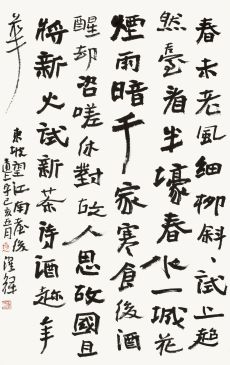 春未老風細柳斜、試上超
然臺看半壕春水一城花
煙雨暗千家寒食後酒
醒却咨嗟休對故人思故國且
將新火試新茶詩酒趁年
華
東坡望江南
己亥五月